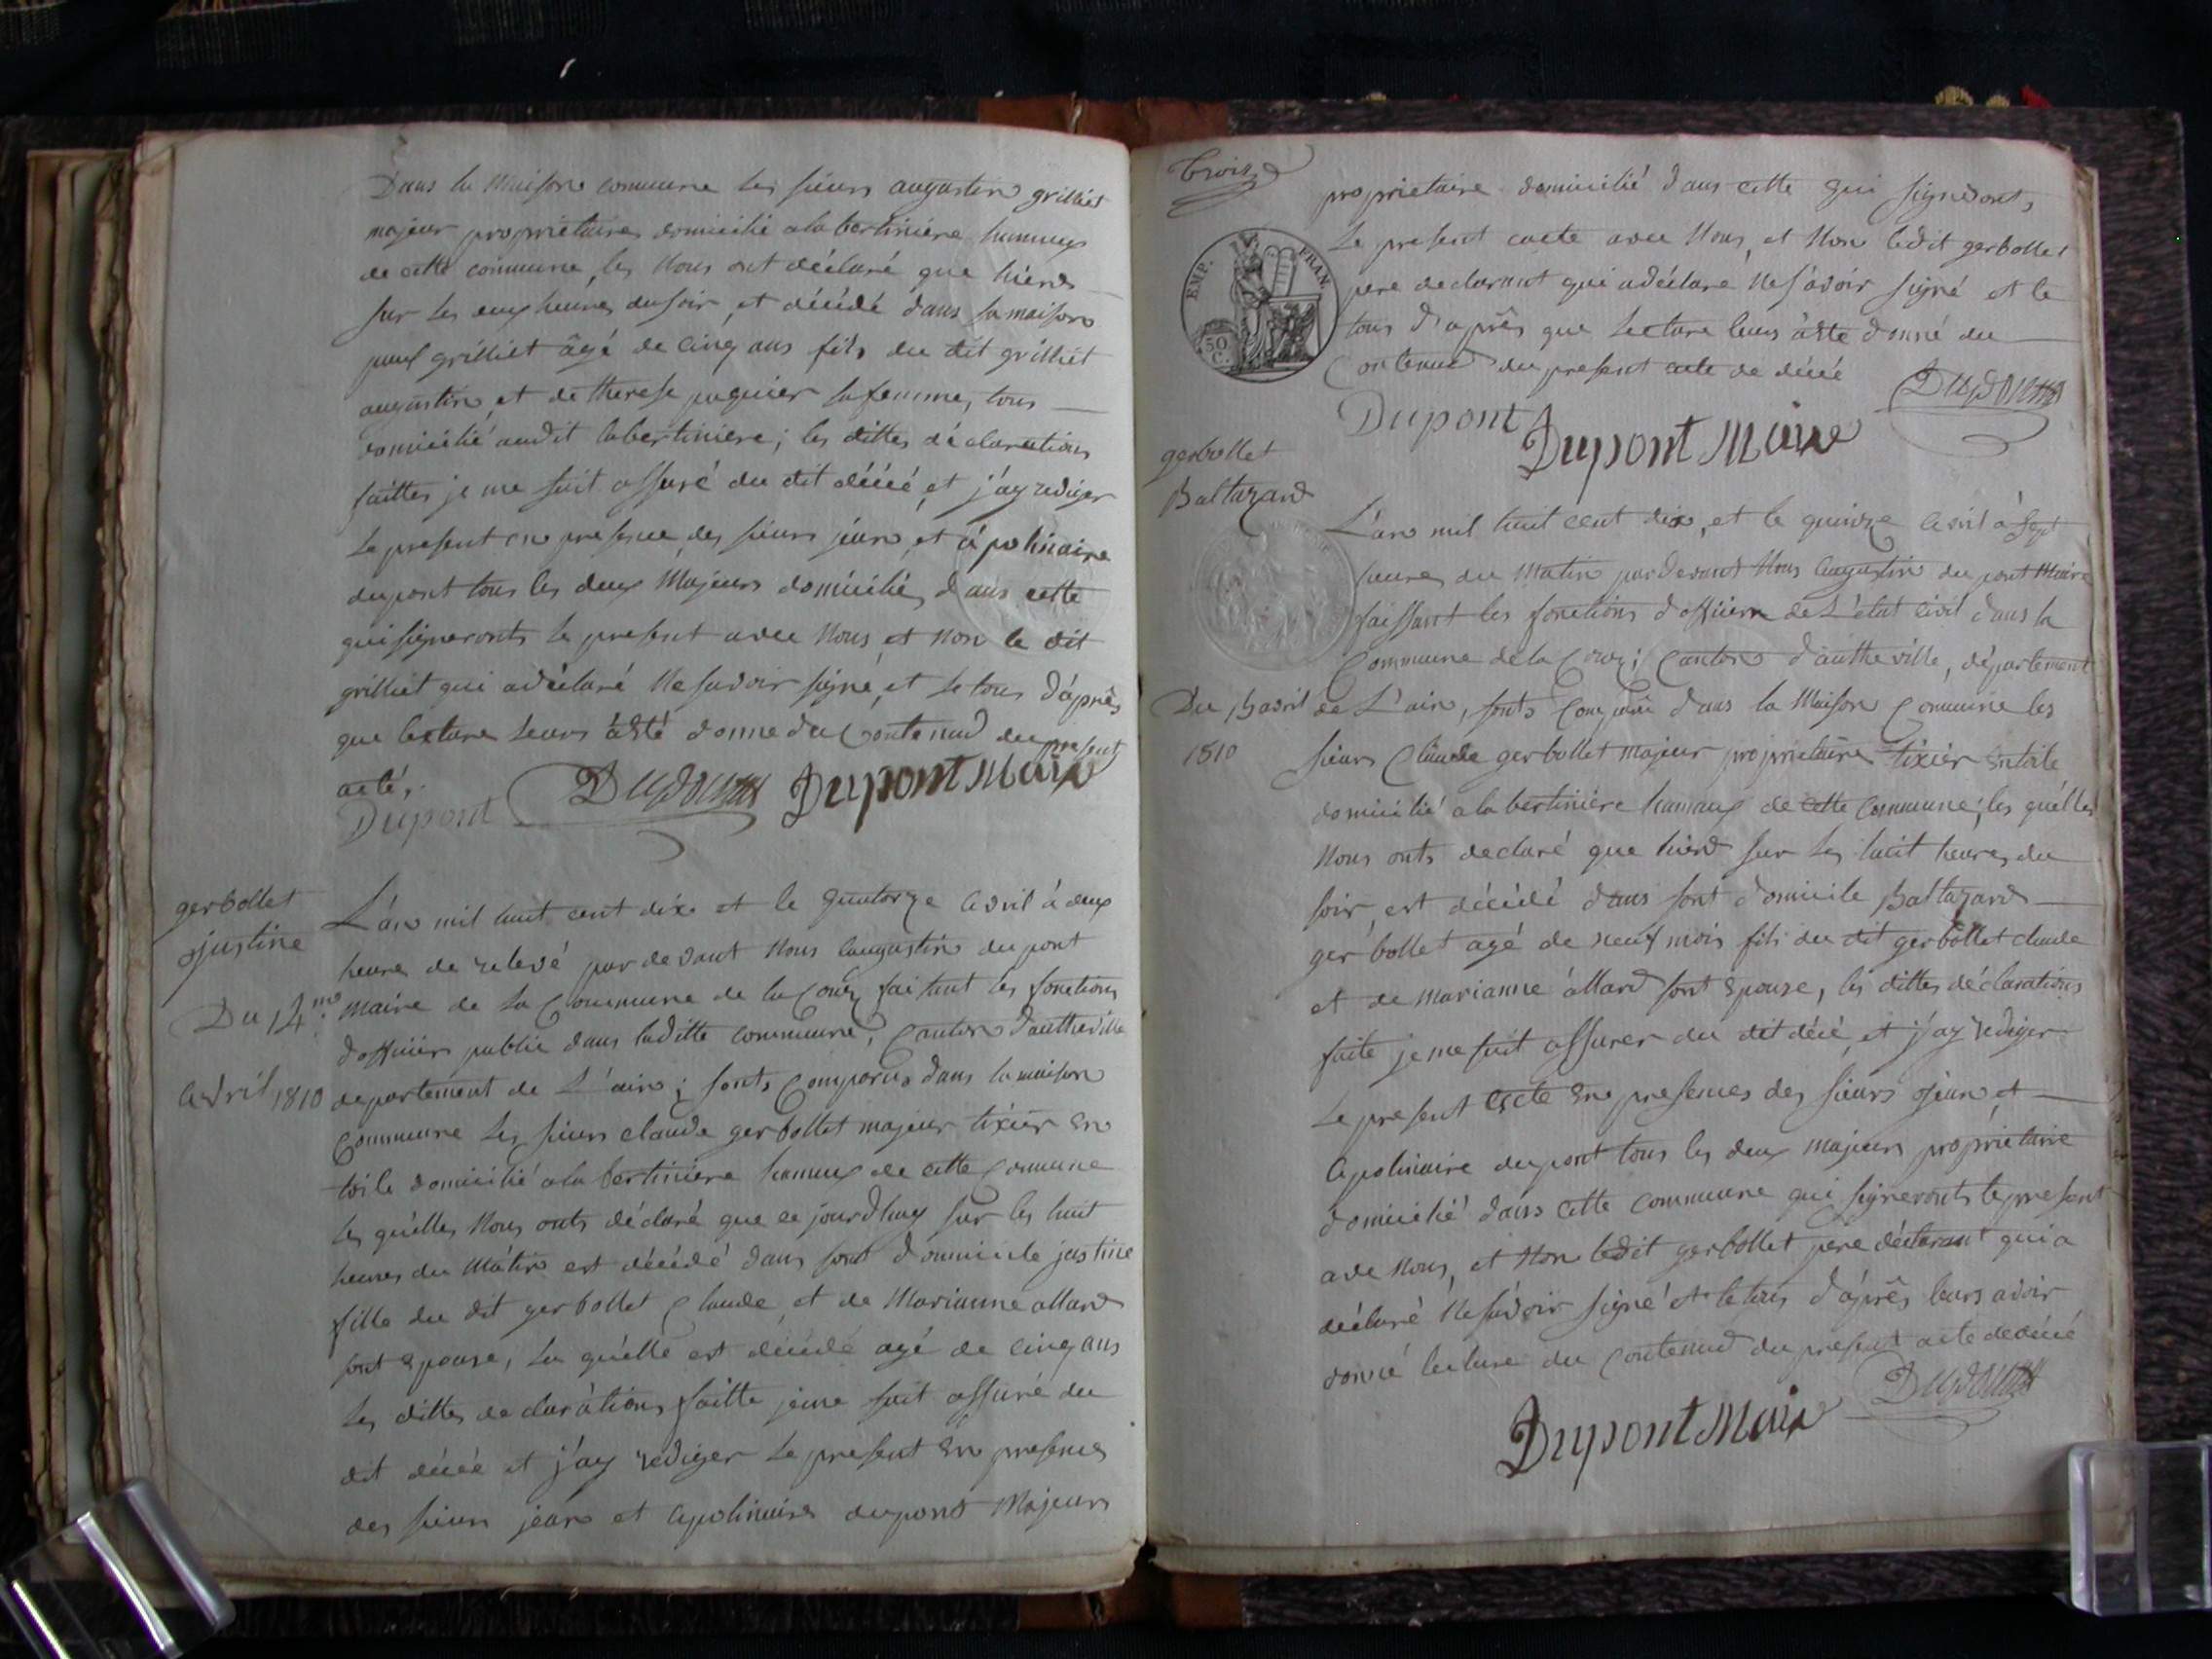 Dans la Maison comune les sieurs augustin grilliet
majeur propriétaire domicilié a la bertinière hameaux
de cette commune, les Nous ont déclaré que hierd
sur les onze heures du soir, et décédé dans sa maison
grilliet âgé de cinq ans fils du dit grilliet
augustin, et de therese paquier sa femme, tous
domicilié audit labertiniere; les dittes déclarations
faittes je me suit assuré du dit décéé, et j'ay rediger
Le present en presence des sieurs jean, et apolinaire
dupont tous les deux Majeurs domiciliés dans cette
qui signeronts le present avec Nous, et non le dit
grilliet qui a déclaré Ne savoir signé, et le tous d'après
que lecture leurs àété donne du Contenud du present
acté,.
Dupont Dupont Dupont Maire
gerbollet
justine
Du 14.me
avril 1810
L'an mil huit cent dix et le quatorze avril à deux
heures de relevé par devant Nous augustin du pont
maire de la Commune de la Couz faitant les fonctions
d'officier public dans laditte commune, Canton d'autheville
departement de L'ain; sonts Comparus dans la maison
Commune les sieurs claude gerbollet majeur tixier en
toile domicilié a la bertiniere hamaux de cette Comune
les quélles Nous onts déclaré que ce jourdhuy sur les huit
heures du Mátin est décédé dans sont domicile justine
fille du dit gerbollet Claude et de Marianne allard
sont epouse, la quélle est décédé agé de cinq ans
les dittes declarátions faitte jeme suit assuré du
dit décéé et j'ay rediger le present en presences
des sieurs jean et apolinaire dupont Majeurs
Trois
proprietaire domicilié dans cette qui signeronts
Le present acte avec Nous, et Non ledit gerbollet
pere declarant qui a déclaré Ne sávoir signé et le
tous d'après que lecture leurs àété donné du
Contenud du present acte de décé
Dupont Dupont Maire Dupont
EMP. FRAN.
50 C.
gerbollet
Baltazard
Du 15 avril
1810
L'an mil huit cent dix, et le quinze avril á sept
heures du Matin pardevant Nous augustin du pont Maire
faissant les fonctions d'officier de L'état civil dans la
Commune de la Couz; Canton d'autheville, département
de L'ain, sonts Comparu dans la Maison Comune les
sieurs Claude gerbollet majeur propriétaire tixier entoile
domicilié a la bertinière hamaux de cette Commune; les quélles
Nous onts declaré que hierd sur les huit heures du
soir, est décédé dans sont domicile Baltazard
gerbollet agé de neuf mois fils du dit gerbollet claude
et de marianne állard sont epouse, les dittes déclarations
faite je me suit assurer du dit décé, et j'ay rediger
Le present acte en presences des sieurs jean et
apolinaire dupont tous les deux majeurs propriétaire
domicilié dans cette commune qui signeronts le present
avec Nous, et Non ledit gerbollet père déclarant qui a
déclaré Ne sávoir signé et le tous d'après leurs avoir
donné lecture du Contenud du present acte de décé
Dupont Maire Dupont